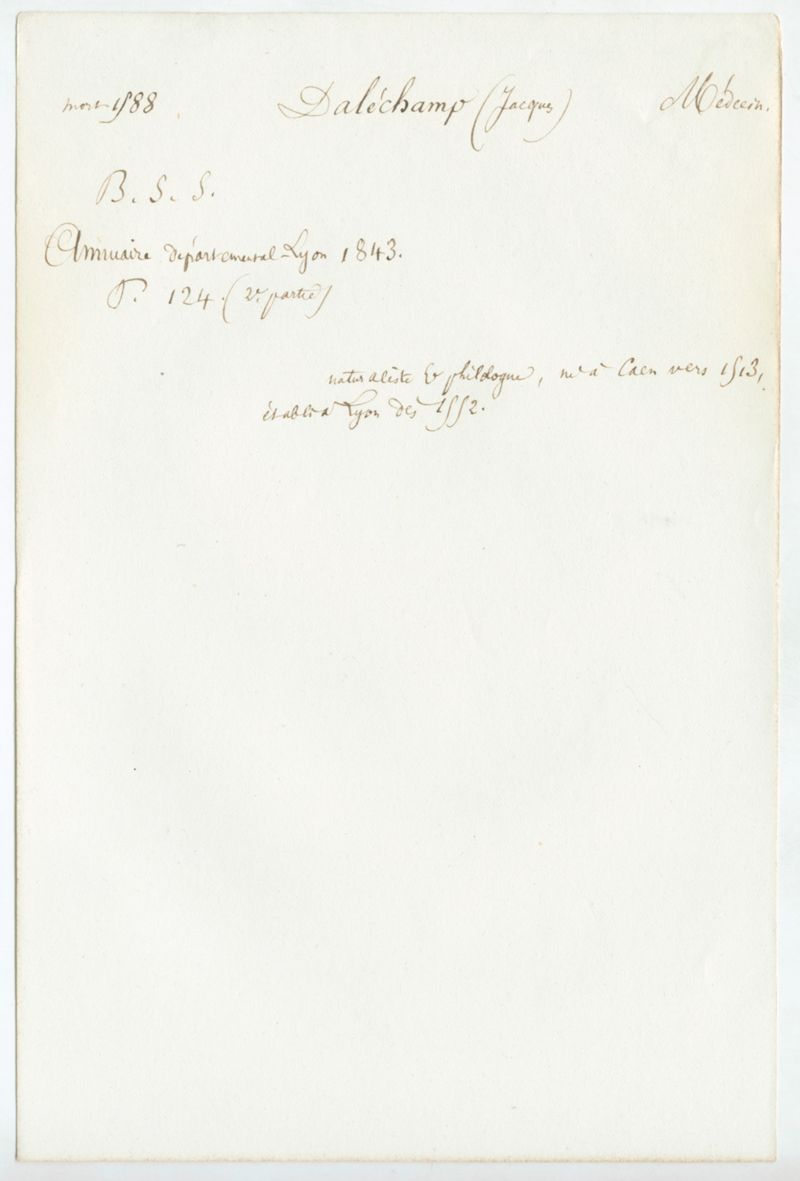 mort 1588 Daléchamp (Jacques) Médecin.
B. S. S.
Annuaire départemental Lyon 1843.
P. 124. (2e partie)
naturaliste & philologue, né à Caen vers 1513,
établi à Lyon dès 1552.